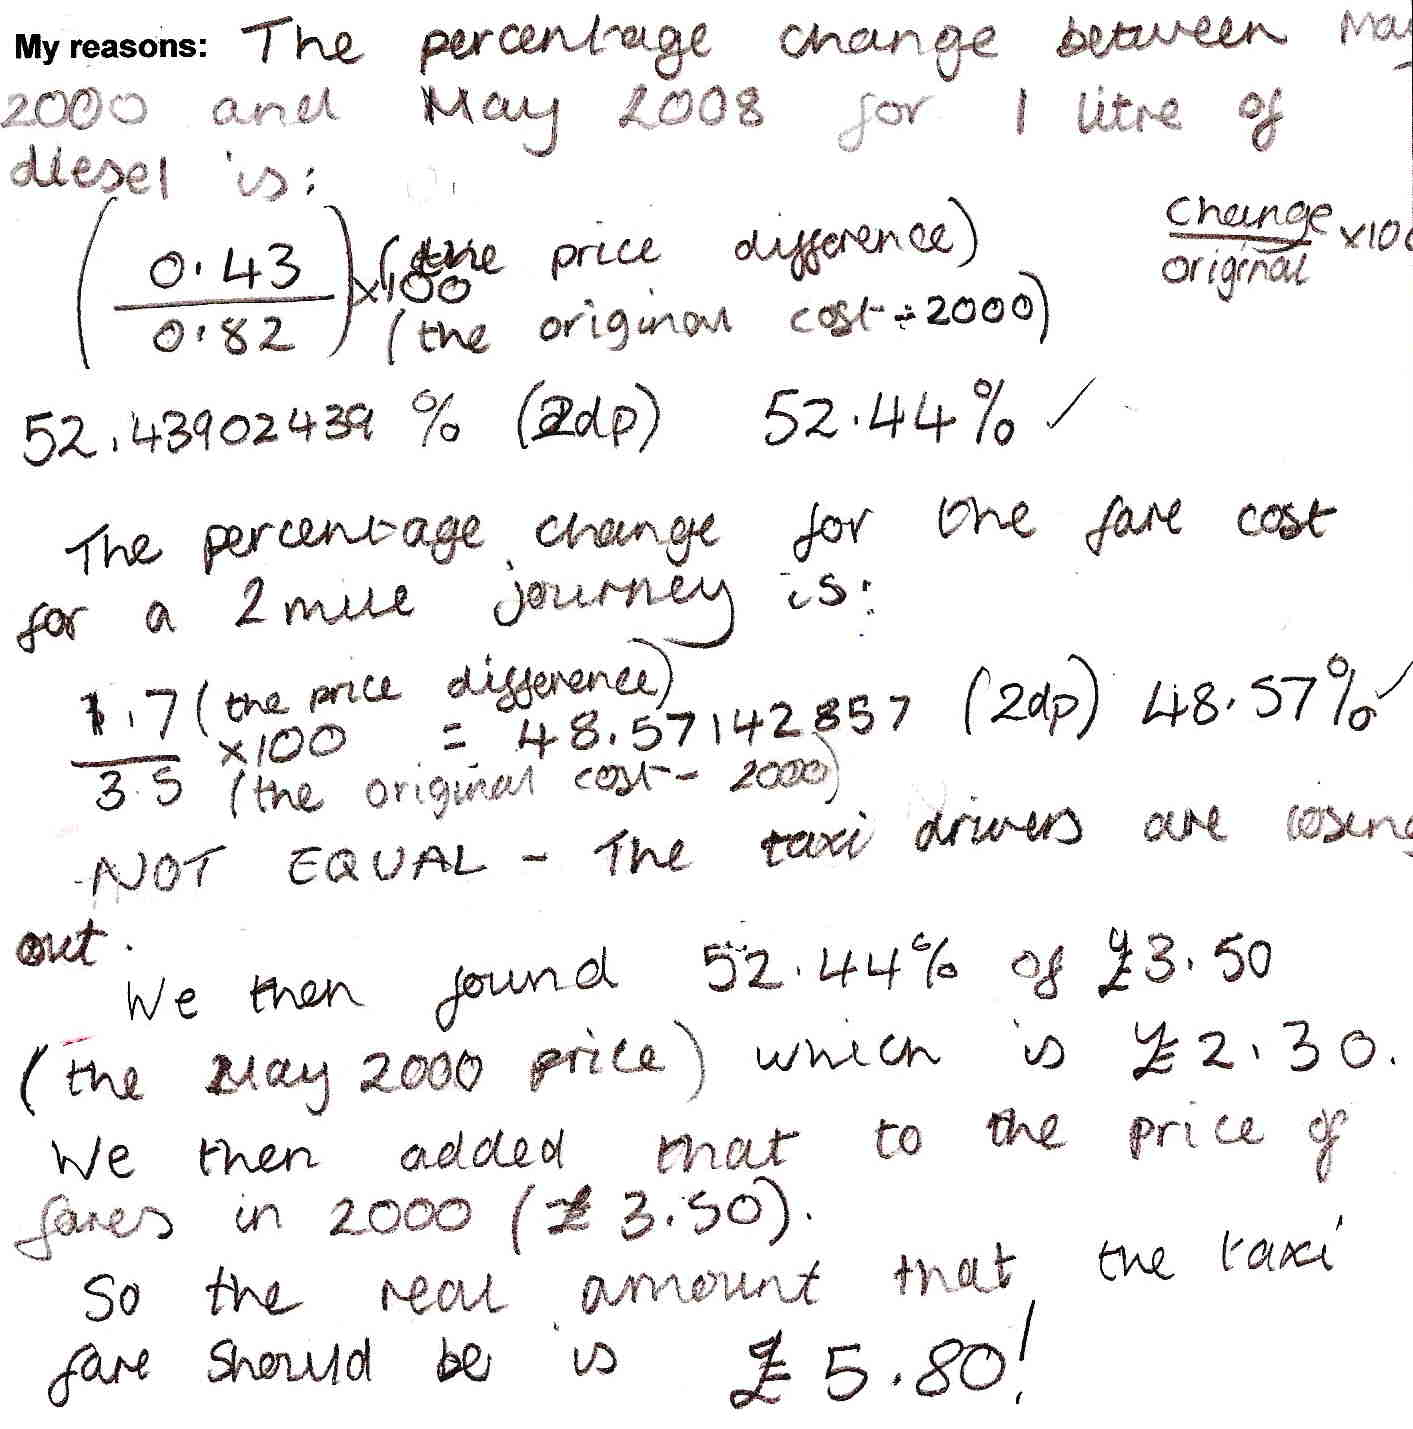 My reasons: The percentage change between May
2000 and May 2008 for 1 litre of
diesel is:
(0.43/0.82) x100 (the price difference)
(the original cost - 2000)
change/original x100
52.43902439 % (2dp) 52.44% ✓
The percentage change for the fare cost
for a 2 mile journey is:
1.7 (the price difference)
x100 = 48.57142857 (2dp) 48.57% ✓
3.5 (the original cost - 2000)
NOT EQUAL - The taxi drivers are losing
out.
We then found 52.44% of £3.50
(the May 2000 price) which is £2.30.
We then added that to the price of
fares in 2000 (£3.50).
So the real amount that the taxi
fare should be is £5.80!